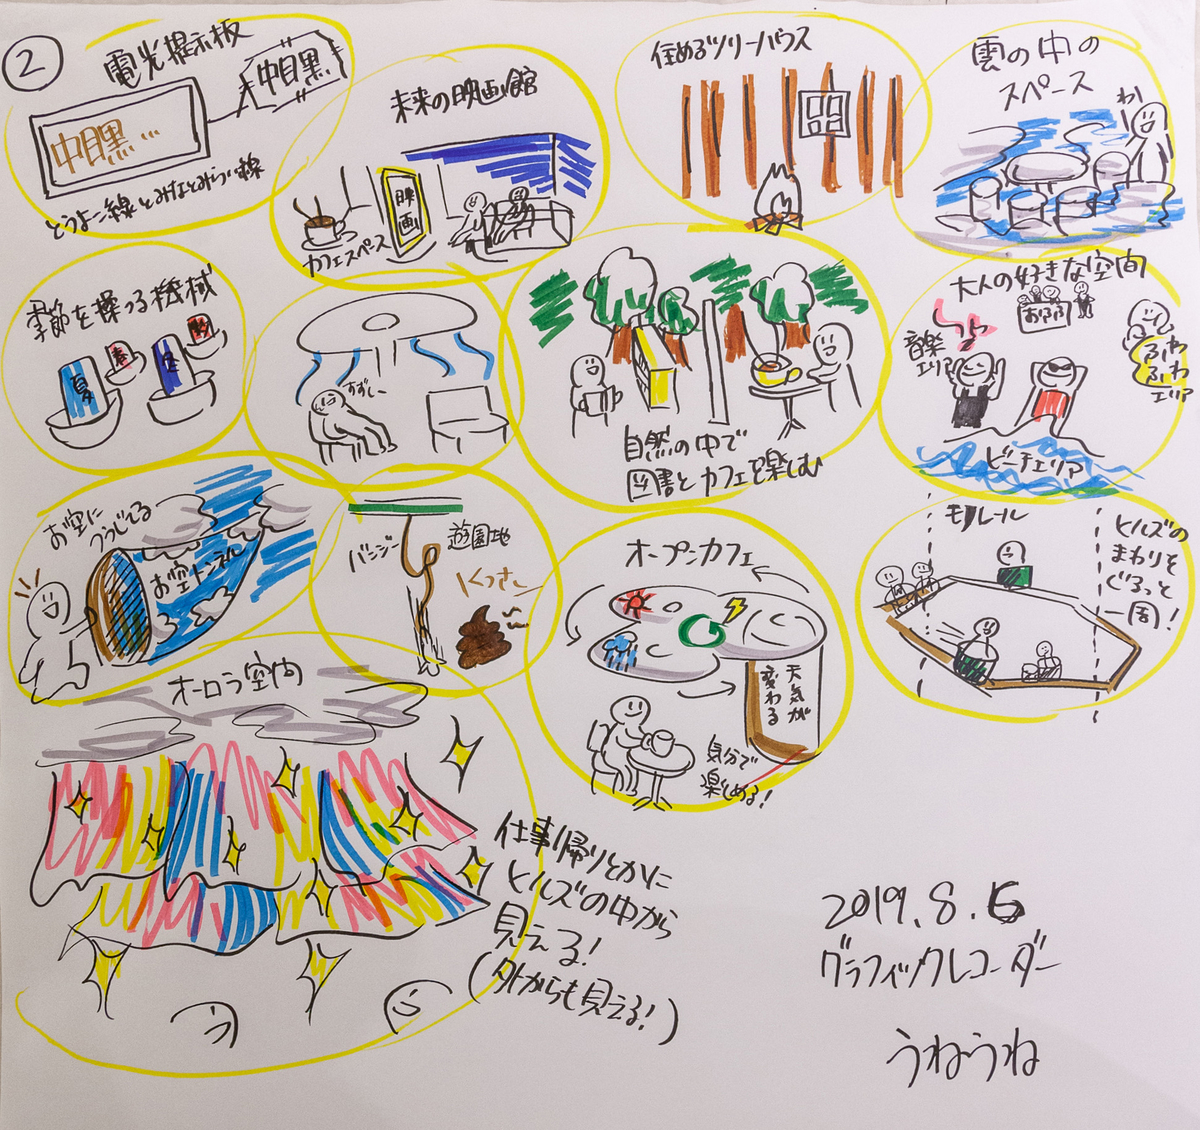 ②
電光掲示板
中目黒
中目黒…
とうよこ線とみなとみらい線
未来の映画館
映画
カフェスペース
住めるツリーハウス
雲の中の
スペース
わっ
季節を操つる機械
夏
春
冬
秋
すずしー
自然の中で
図書とカフェを楽しむ
大人の好きな空間
音楽
エリア
おふろ
ふわ
ふわ
エリア
ビーチエリア
お空に
つうじてる
お空トンネル
バンジー
遊園地
くっさー
オープンカフェ
天気が
変わる
気分で
楽しめる!
モノレール
ヒルズの
まわりを
ぐるっと
一周!
オーロラ空間
仕事帰りとかに
ヒルズの中から
見える!
(外からも見える!)
2019.8.6
グラフィックレコーダー
うねうね